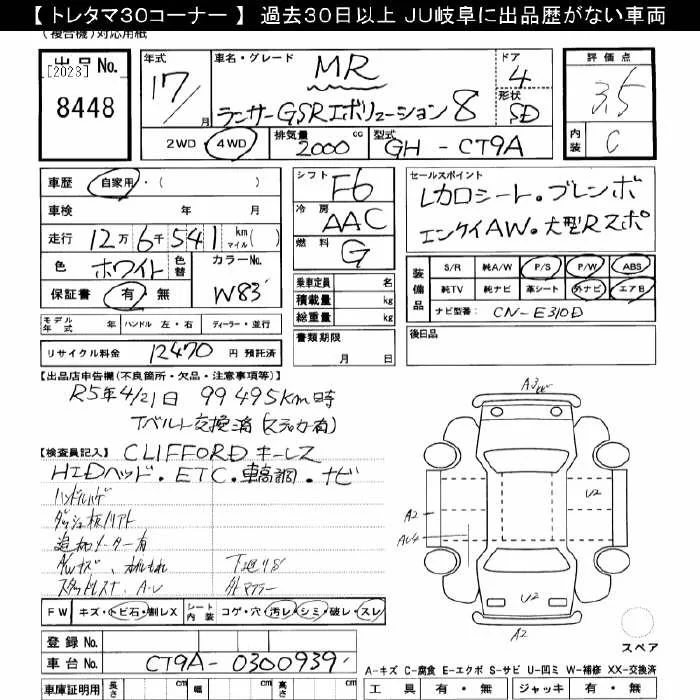 【トレタマ30コーナー】 過去30日以上 JU岐阜に出品歴がない車両
(複合機)対応用紙
出品No.
[2023]
8448
年式
17/
月
車名・グレード
MR
ランサーGSRエボリューション8
ドア
4
形状
SD
評価点
3.5
内装
C
2WD・4WD
排気量
2000
cc
型式
GH-CT9A
車歴
自家用・( )
車検 年 月
走行 12万6千541 km マイル( )
色 ホワイト 色替 カラーNo. W83
保証書 有・無
シフト F6
冷房 AAC
燃料 G
セールスポイント
レカロシート。ブレンボ
エンケイAW。大型Rスポ
装備品
S/R 純A/W P/S P/W ABS
純TV 純ナビ 革シート 外ナビ エアB
ナビ型番: CN-E310D
乗車定員 名
積載量 kg
総重量 kg
モデル年式 年 ハンドル 左・右 ディーラー・並行
リサイクル料金 12470 円 預託済
書類期限
月 日
後日品
【出品店申告欄(不良箇所・欠品・注意事項等)】
R5年4/21日 99495km時
Tベルト交換済(ステッカー有)
【検査員記入】 CLIFFORD キーレス
HIDヘッド。ETC。車高調。ナビ
ハンドルハゲ
追加メーター有
下廻りS
外マフラー
A3
U2
A2
U2
A2
FW キズ・トビ石・割レX シート内装 コゲ・穴・汚レ・シミ・破レ・スレ
登録No.
車台No. CT9A-0300939
スペア
A-キズ C-腐食 E-エクボ S-サビ U-凹ミ W-補修 XX-交換済
車庫証明用 長さ cm 幅 cm 高さ cm
工具 有・無 ジャッキ 有・無